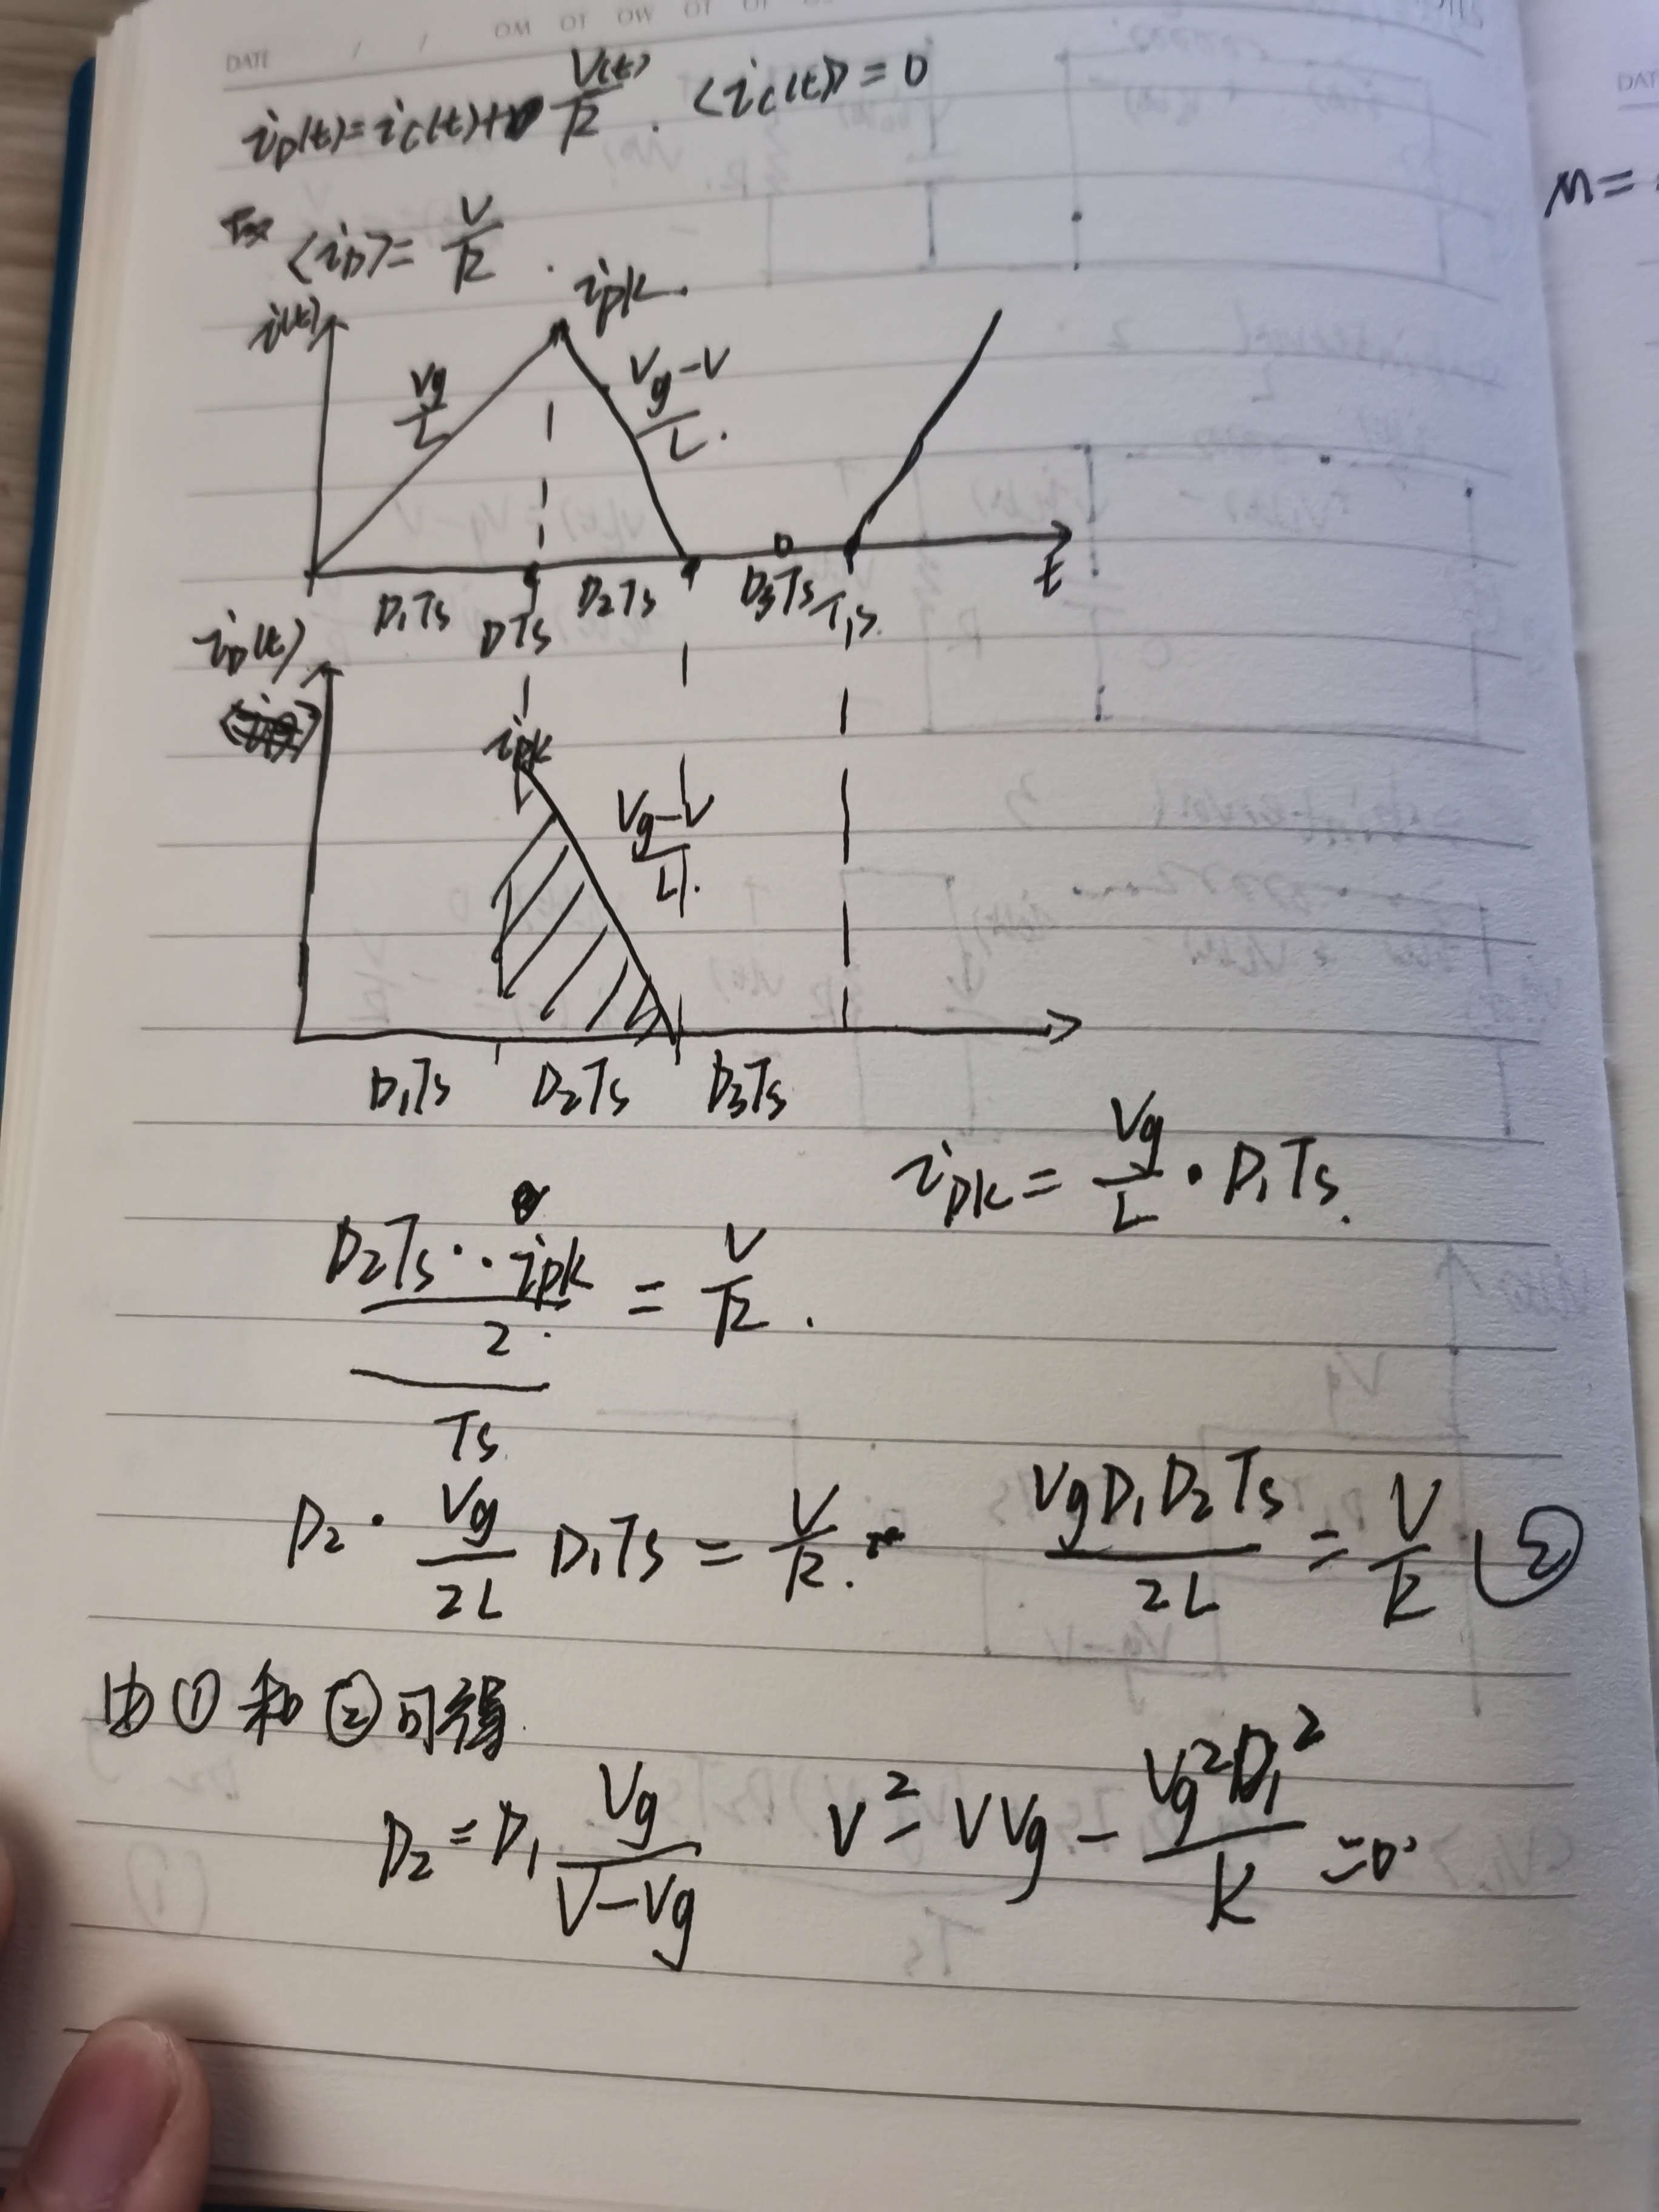 DATE / / OM OT OW OT
i_D(t)=i_C(t)+ V(t)/R . <i_C(t)>=0
DAT
M=
故 <i_D>= V/R .
i(t) i_pk.
Vg/L (Vg-V)/L .
0
D₁Ts DTs D₂Ts D₃Ts Ts. t
i_D(t)
i_pk
(Vg-V)/L .
D₁Ts D₂Ts D₃Ts
i_pk= Vg/L · D₁Ts.
(D₂Ts · i_pk / 2) / Ts = V/R .
D₂ · Vg/2L D₁Ts = V/R . VgD₁D₂Ts/2L = V/R ②
由①和②可得.
D₂=D₁ Vg/(V-Vg) V²-VVg- Vg²D₁²/K =0